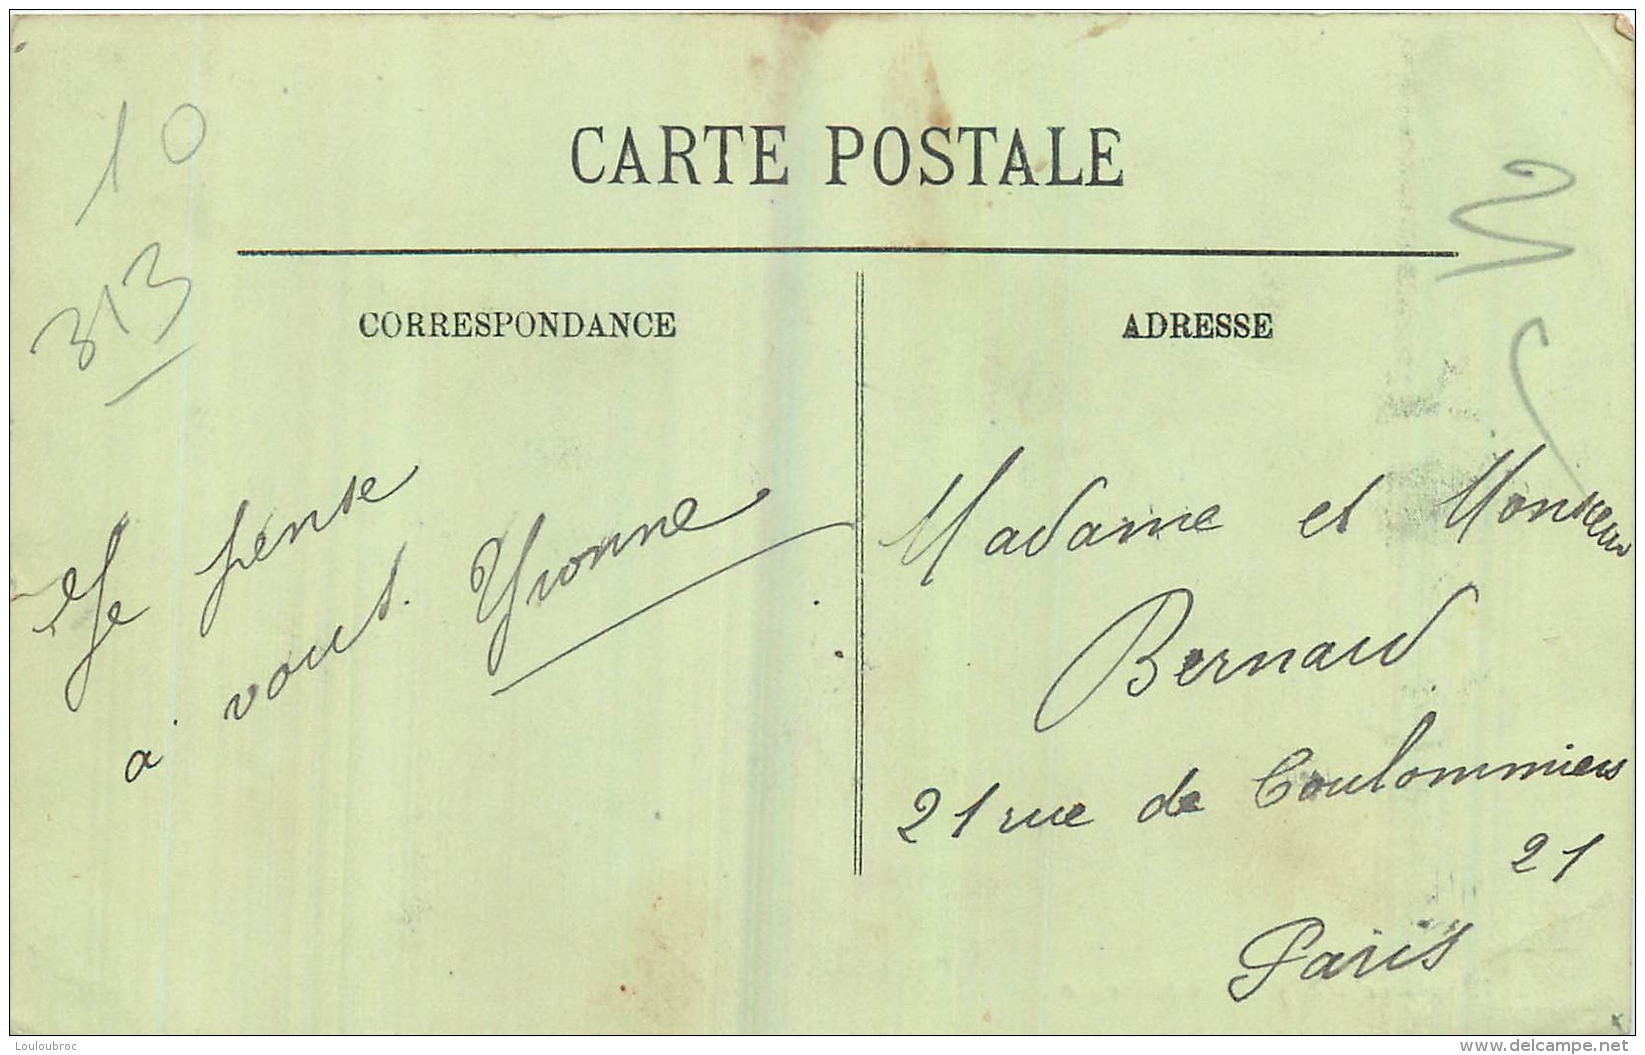 10
313
CARTE POSTALE
CORRESPONDANCE
ADRESSE
Je pense
à vous. Yvonne
Madame et Monsieur
Bernard
21 rue de Coulommiers
21
Paris
Louloubroc
www.delcampe.net